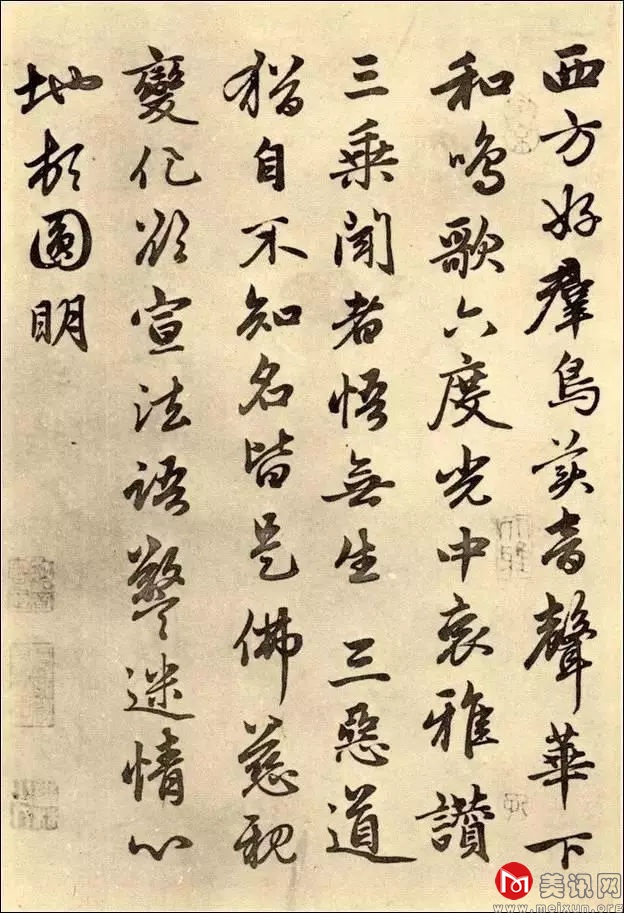 西方好羣鳥美音聲華下
和鳴歌六度光中哀雅讚
三乗聞者悟無生 三惡道
猶自不知名皆是佛慈親
變化欲宣法語警迷情心
地頓圓明
美讯网
www.meixun.org